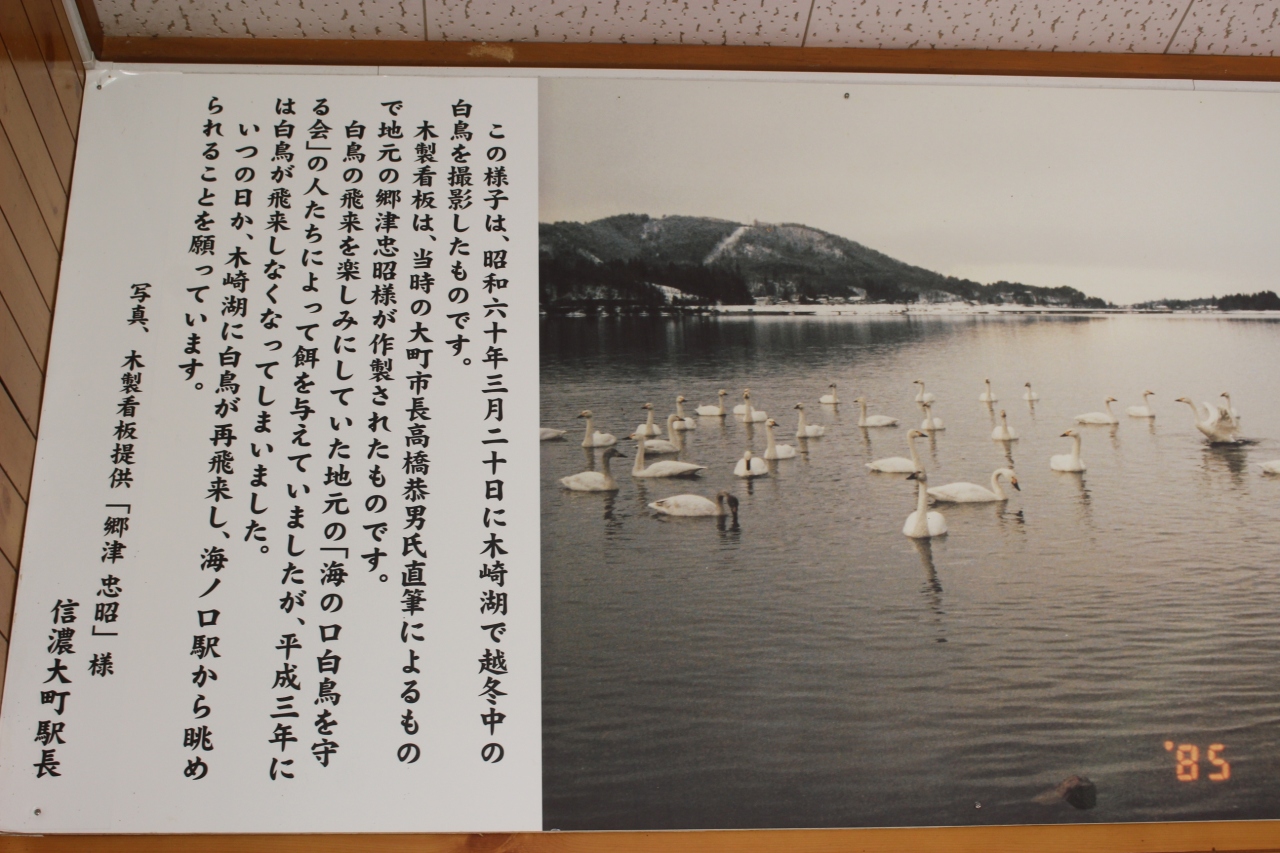 この様子は、昭和六十年三月二十日に木崎湖で越冬中の
白鳥を撮影したものです。
木製看板は、当時の大町市長高橋恭男氏直筆によるもの
で地元の郷津忠昭様が作製されたものです。
白鳥の飛来を楽しみにしていた地元の「海の口白鳥を守
る会」の人たちによって餌を与えていましたが、平成三年に
は白鳥が飛来しなくなってしまいました。
いつの日か、木崎湖に白鳥が再飛来し、海ノ口駅から眺め
られることを願っています。
写真、木製看板提供「郷津 忠昭」様
信濃大町駅長
'85